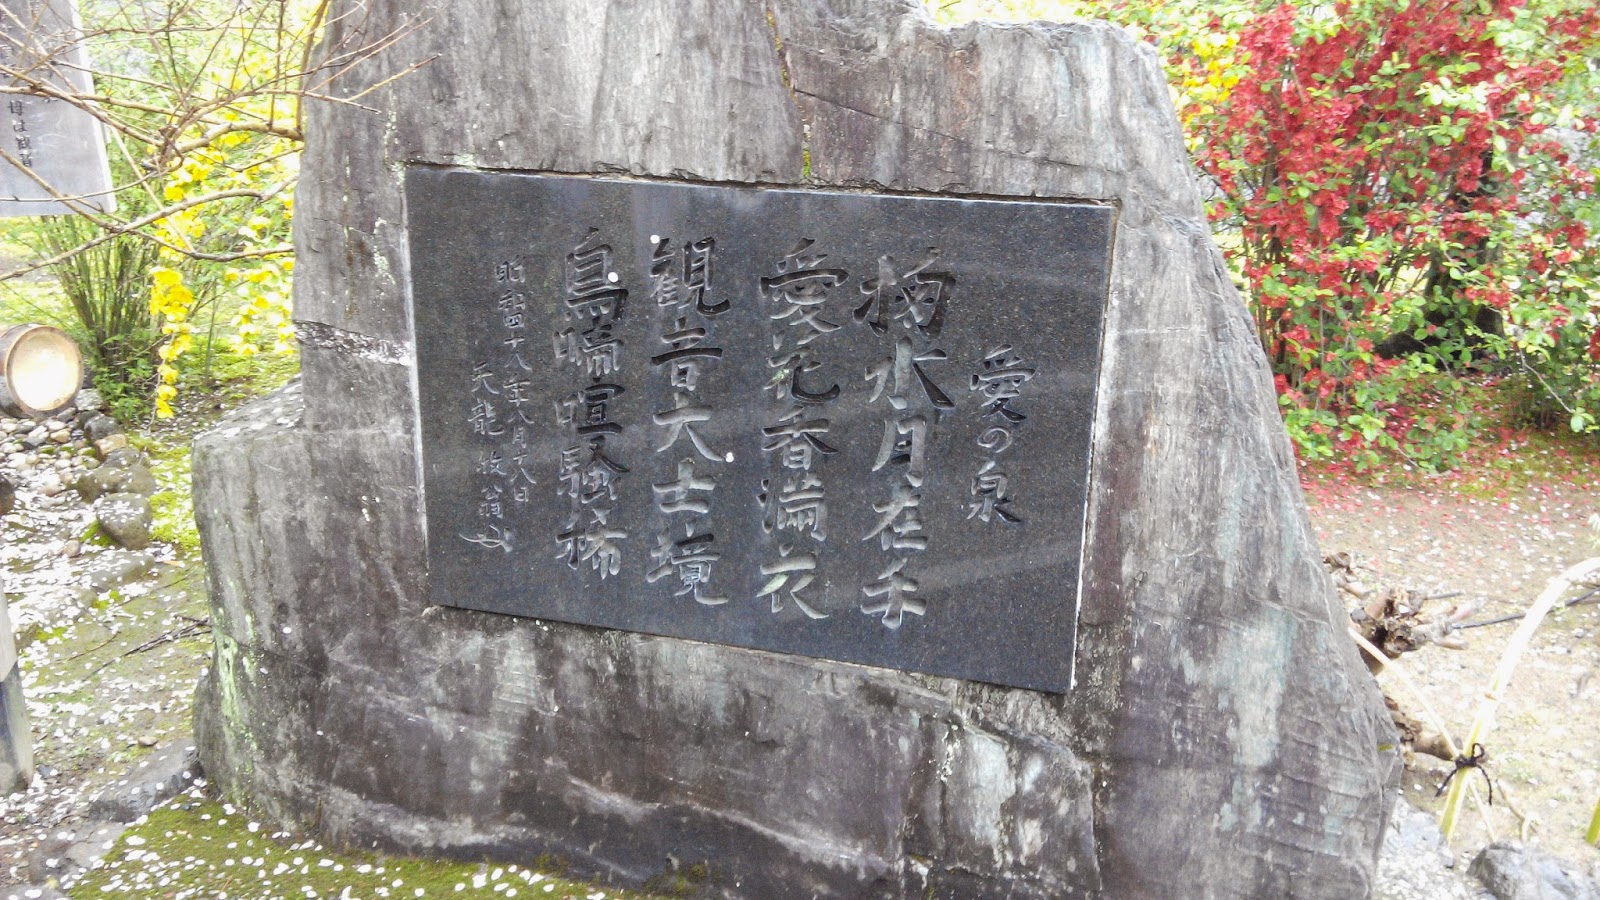 愛の泉
掬水月在手
愛花香満衣
観音大士境
鳥啼喧騒稀
昭和四十八年八月十八日
天龍牧翁
母は観音